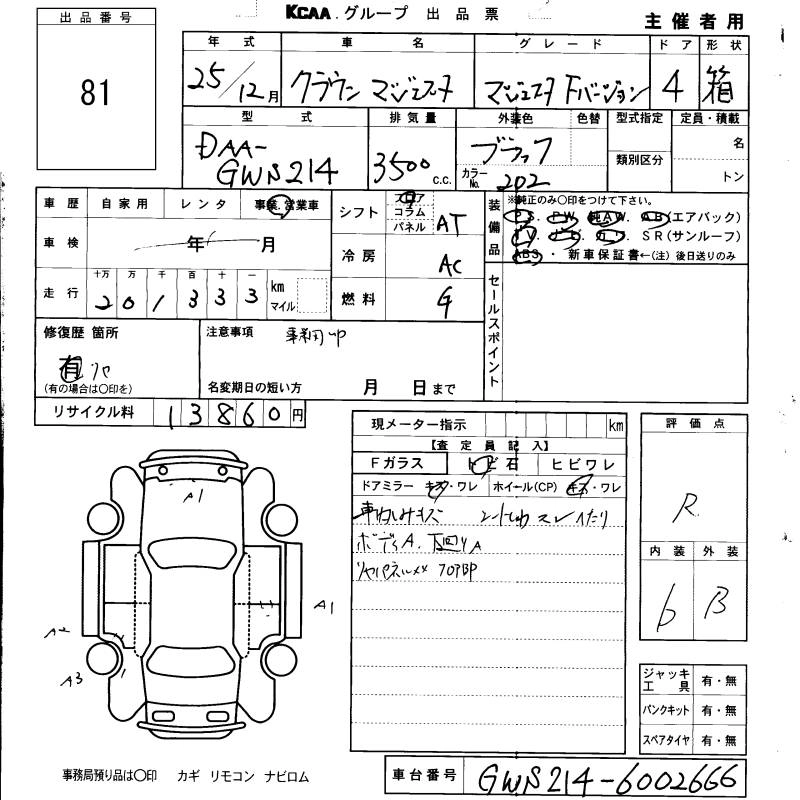 KCAA グループ 出品票
主催者用
出品番号
81
年式 車名 グレード ドア 形状
25/12月 クラウン マジェスタ マジェスタ Fバージョン 4 箱
型式 排気量 外装色 色替 型式指定 定員・積載
DAA-GWS214 3500c.c. ブラック
カラーNo. 202
類別区分
名
トン
車歴 自家用 レンタ 事業、営業車
車検 年 月
走行 十万 万 千 百 十 一
201333 km マイル
シフト フロア コラム パネル AT
冷房 AC
燃料 G
装備品
※純正のみ○印をつけて下さい。
PS. PW. 純AW. AB(エアバック)
TV. ナビ. カワ. SR(サンルーフ)
ABS・新車保証書←(注)後日送りのみ
セールスポイント
修復歴 箇所
有
(有の場合は○印を)
注意事項
名変期日の短い方 月 日まで
リサイクル料 13860円
現メーター指示 km
【査定員記入】
Fガラス トビ石 ヒビワレ
ドアミラー キズ・ワレ ホイール(CP) キズ・ワレ
ボディA. 下回りA
評価点
R
内装 外装
6 B
A1
A1
A2
A3
ジャッキ工具 有・無
パンクキット 有・無
スペアタイヤ 有・無
事務局預り品は○印 カギ リモコン ナビロム
車台番号 GWS214-6002666